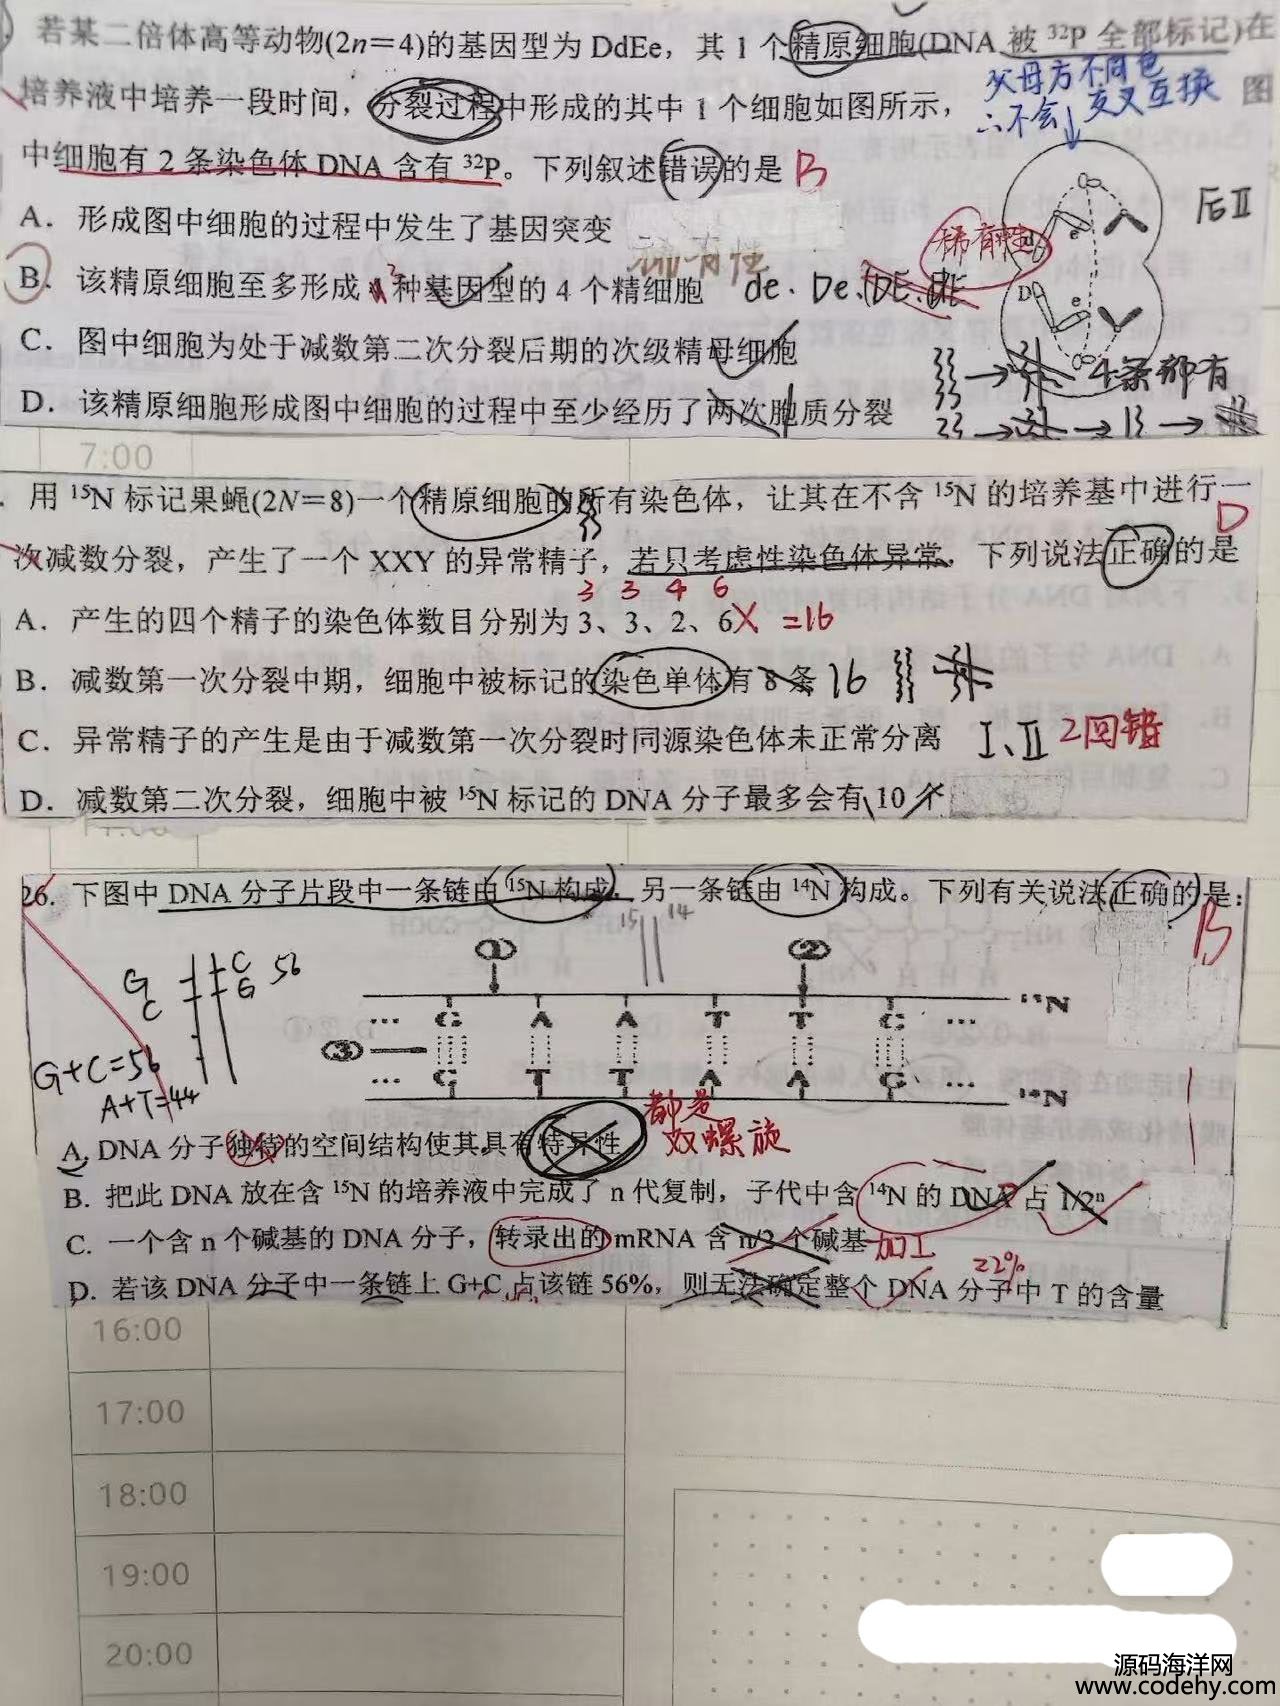 若某二倍体高等动物(2n=4)的基因型为 DdEe，其 1 个精原细胞(DNA 被 ³²P 全部标记)在
培养液中培养一段时间，分裂过程中形成的其中 1 个细胞如图所示，图
父母方不同色
∴不会交叉互换
中细胞有 2 条染色体 DNA 含有 ³²P。下列叙述错误的是 B
后Ⅱ
A．形成图中细胞的过程中发生了基因突变
稀有性
稀有性
B．该精原细胞至多形成 3 种基因型的 4 个精细胞 de、De、DE、dE
d e
D e
C．图中细胞为处于减数第二次分裂后期的次级精母细胞
4条都有
D．该精原细胞形成图中细胞的过程中至少经历了两次胞质分裂
7:00
．用 ¹⁵N 标记果蝇(2N=8)一个精原细胞的所有染色体，让其在不含 ¹⁵N 的培养基中进行一
D
次减数分裂，产生了一个 XXY 的异常精子，若只考虑性染色体异常，下列说法正确的是
3 3 4 6
A．产生的四个精子的染色体数目分别为 3、3、2、6 X =16
B．减数第一次分裂中期，细胞中被标记的染色单体有 8 条 16
C．异常精子的产生是由于减数第一次分裂时同源染色体未正常分离 Ⅰ、Ⅱ 2回错
D．减数第二次分裂，细胞中被 ¹⁵N 标记的 DNA 分子最多会有 10 个
26. 下图中 DNA 分子片段中一条链由 ¹⁵N 构成，另一条链由 ¹⁴N 构成。下列有关说法正确的是：
B
15 14
① ②
G C
C G 56
¹⁵N
… G A A T T C …
③
… G T T A A G …
¹⁴N
G+C=56
A+T=44
都是
双螺旋
A. DNA 分子独特的空间结构使其具有特异性
B. 把此 DNA 放在含 ¹⁵N 的培养液中完成了 n 代复制，子代中含 ¹⁴N 的 DNA 占 1/2ⁿ
C. 一个含 n 个碱基的 DNA 分子，转录出的 mRNA 含 n/2 个碱基 加工
22%
D. 若该 DNA 分子中一条链上 G+C 占该链 56%，则无法确定整个 DNA 分子中 T 的含量
16:00
17:00
18:00
19:00
20:00
源码海洋网
www.codehy.com